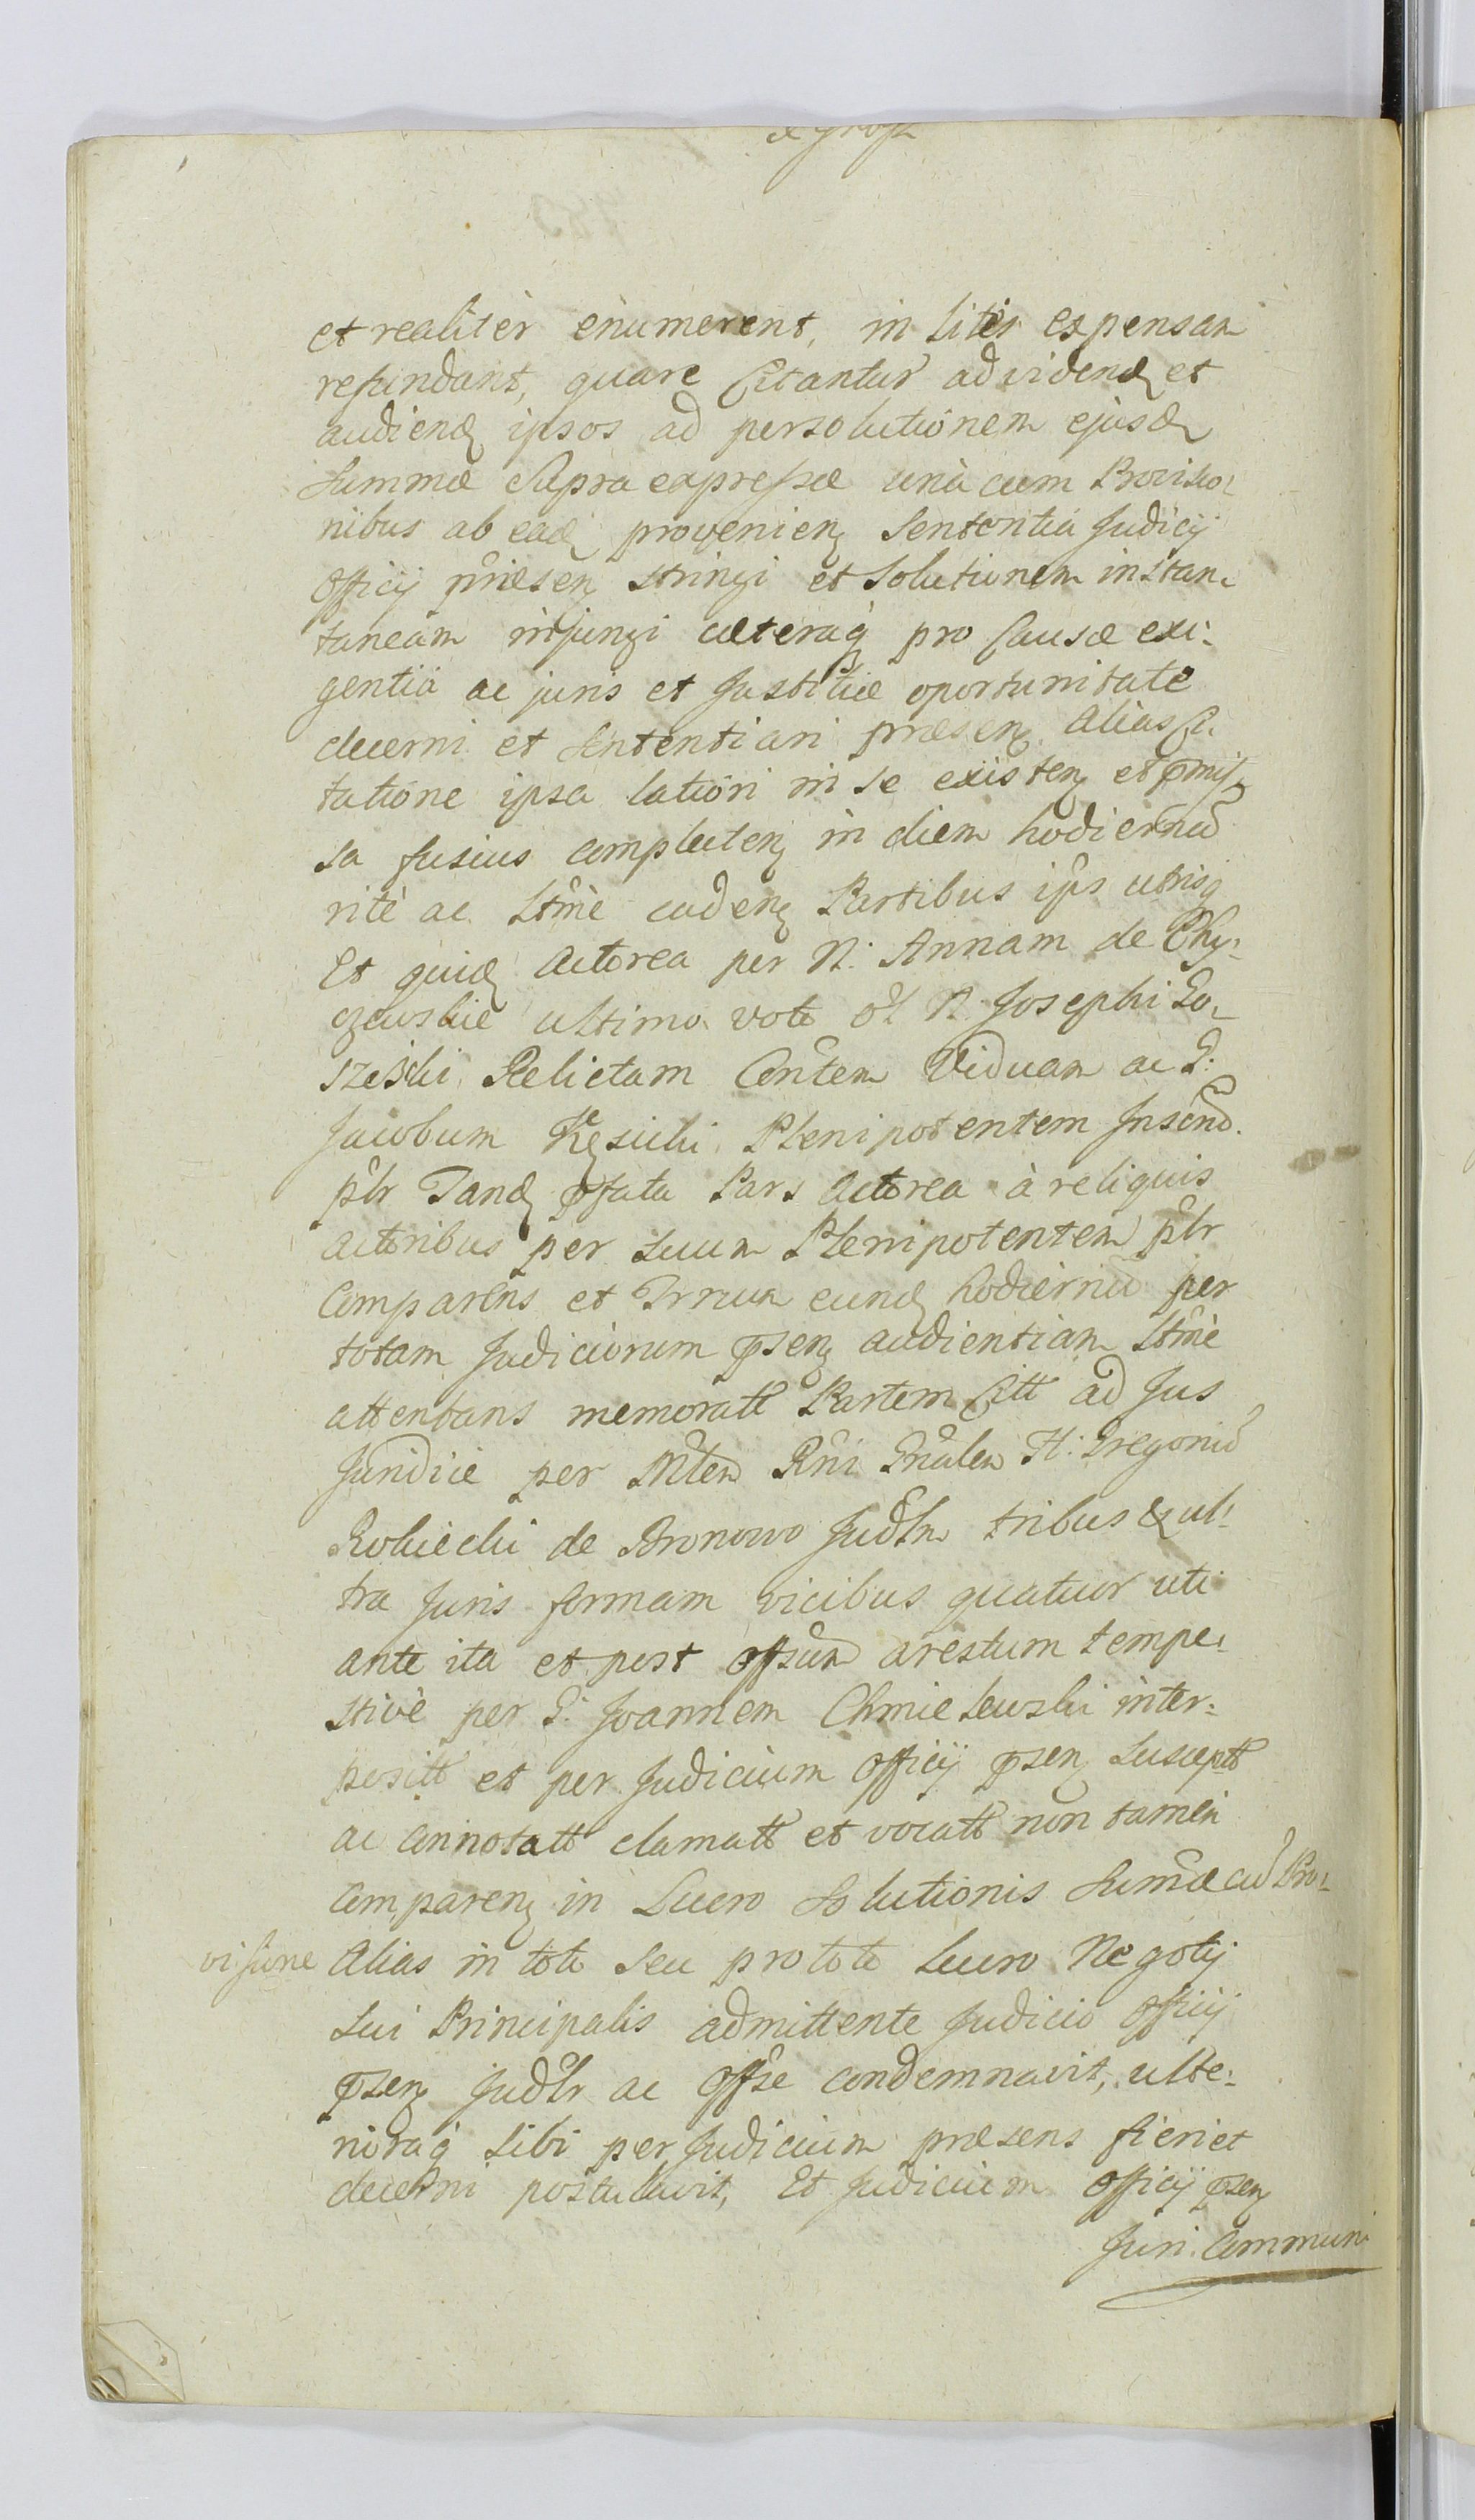 et realiter enumerent, in litis expensam
refundant, quare Citantur ad videnđ et
audienđ ipsos ad persolutionem ejusđ
Summæ Supra expressæ unà cum Provisio-
nibus ab eađ provenienȝ Sententia Judicij
Officij præsenȝ stringi et Solutionem instan-
taneam injungi cæteraq̃ pro Causæ exi-
gentia ac juris et Justitiæ oportunitate
decerni et Sententiari præsenȝ Alias Ci-
tatione ipsa latiori in se existenȝ et p̃mis-
sa fusius complectenȝ in diem hodiernũ
ritè ac Lt̃mè cadenȝ Partibus ip̃is utrisq̃
Et quiđ Actorea per N: Annam de
ultimo voto ol. N. Josephi Go-
szeski Relictam Cõntem Viduam ac G:
Jacobum Plenipotentem
p̃lr Tanđ p̃fata Pars Actorea à reliquis
actoribus per suum Plenipotentem p̃lr
Comparens et Trnum eunđ hodiernũ per
totam Judiciorum p̃senȝ audientiam Lt̃mè
attentans memoratt Partem Citt ad Jus
Juridicè per Mltem Rñi Gñalem H: Gregoriũ
de Bronowo Jud̃lm tribus & ul-
tra Juris formam vicibus quatuor uti
ante ita et post off̃sum arestum tempe-
stivè per G: Joannem Chmielewski inter-
positt et per Judicium Officij p̃senȝ susceptt
ac Connotatt clamatt et vocatt non tamen
Comparenȝ in Lucro Solutionis Sum̃æ cũ Pro-
visione Alias in toto seu pro toto lucro Negotij
Sui Principalis admittente Judicio Officij
p̃senȝ Jud̃lr ac Off̃se condemnavit, ulte-
rioraq̃ Sibi per Judicium præsens fieri et
decerni postulavit, Et Judicium Officij p̃senȝ
Juri Communi